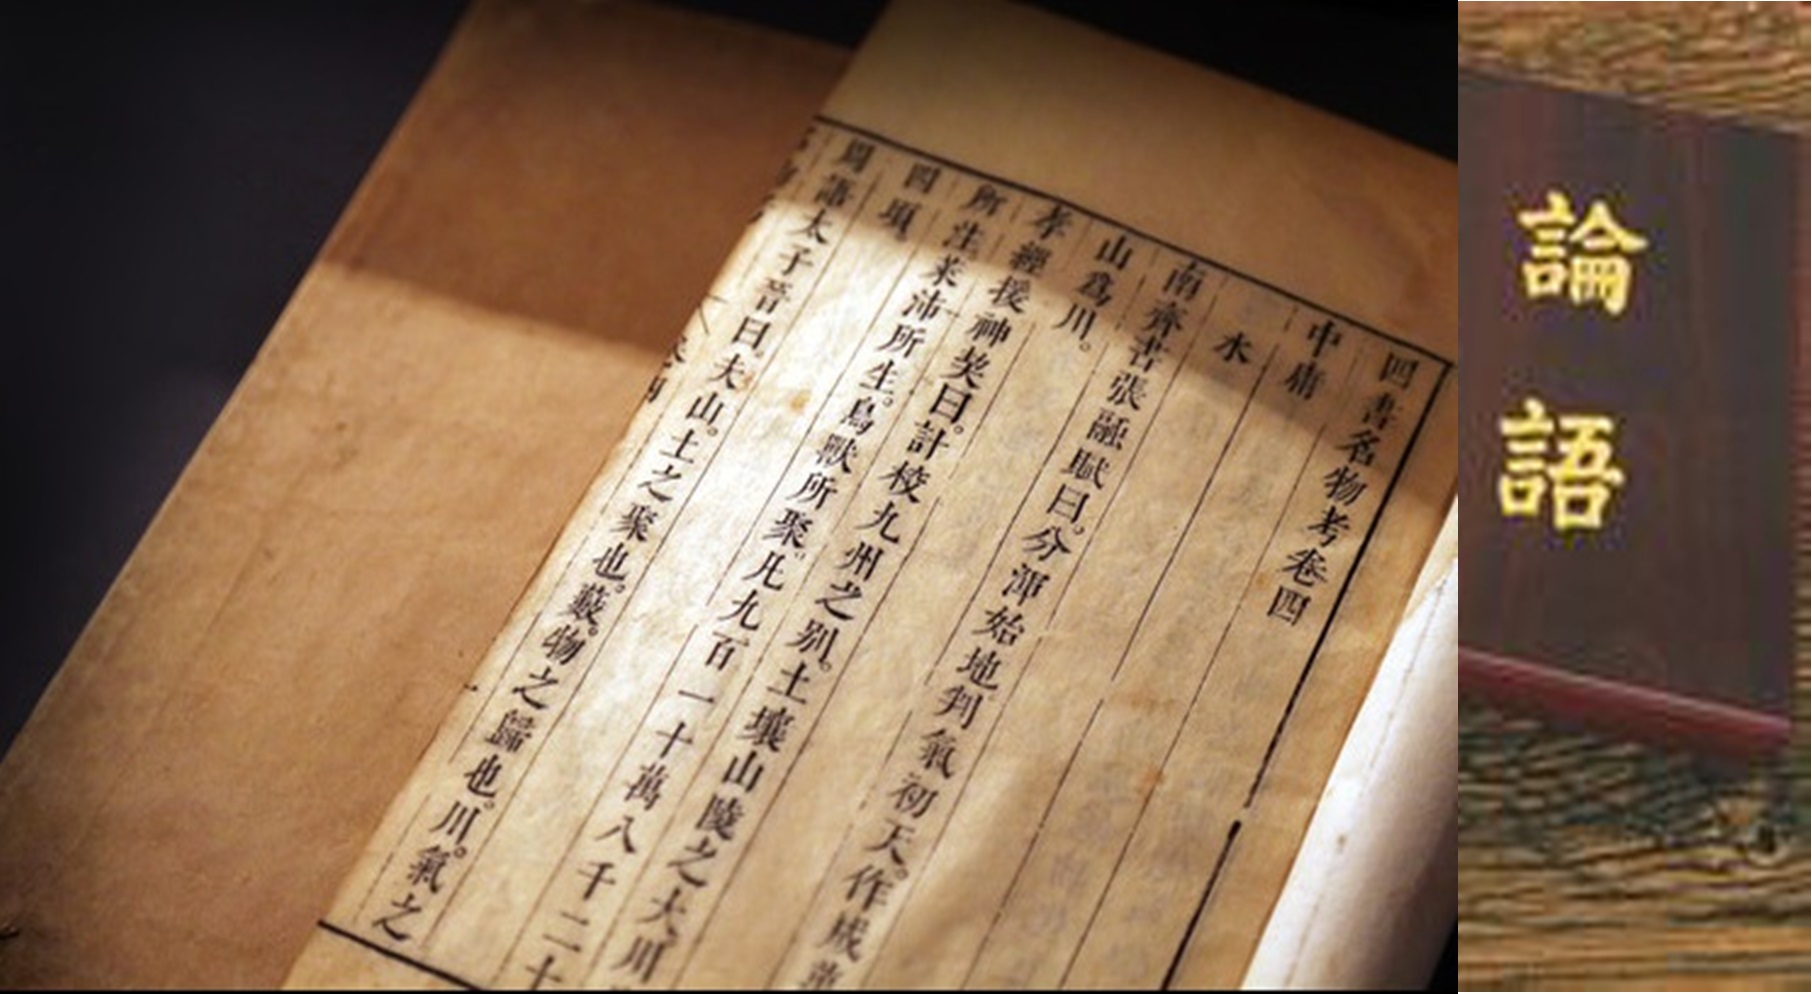 四書名物考卷四
中庸
水
南齊書張融賦曰。分渾始地判氣初天。作成萬
山爲川。
孝經援神契曰。計校九州之別。土壤山陵之大川
所注萊沛所生。鳥獸所聚。凡九百一十萬八千二十
四頃。
周語太子晉曰。夫山。土之聚也。藪。物之歸也。川。氣之
論
語